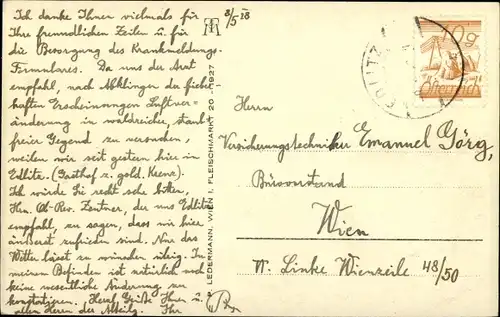 Ich danke Ihnen vielmals für
8/5 28
Ihre freundlichen Zeilen u. für
die Besorgung des Krankmeldungs-
Formulares. Da uns der Arzt
empfahl, nach Abklingen der fieber-
haften Erscheinungen Luftver-
änderung in waldreicher, staub-
freier Gegend zu versuchen,
weilen wir seit gestern hier in
Edlitz. (Gasthof z. gold. Kreuz).
Ich würde Sie recht sehr bitten,
Hrn. Ob. Rev. Zentner, der uns Edlitz
empfahl, zu sagen, dass wir hier
äußerst zufrieden sind. Nur das
Wetter lässt zu wünschen übrig. In
meinem Befinden ist natürlich noch
keine wesentliche Änderung zu
konstatieren. Herzl. Grüße Ihnen u.
allen Herren der Abteilg. Ihr
P. LEDERMANN, WIEN I, FLEISCHMARKT 20 - 1927
EDLITZ
10 g
Österreich
Herrn
Versicherungstechniker Emanuel Görg,
Bürovorstand
Wien
VI. Linke Wienzeile 48/50